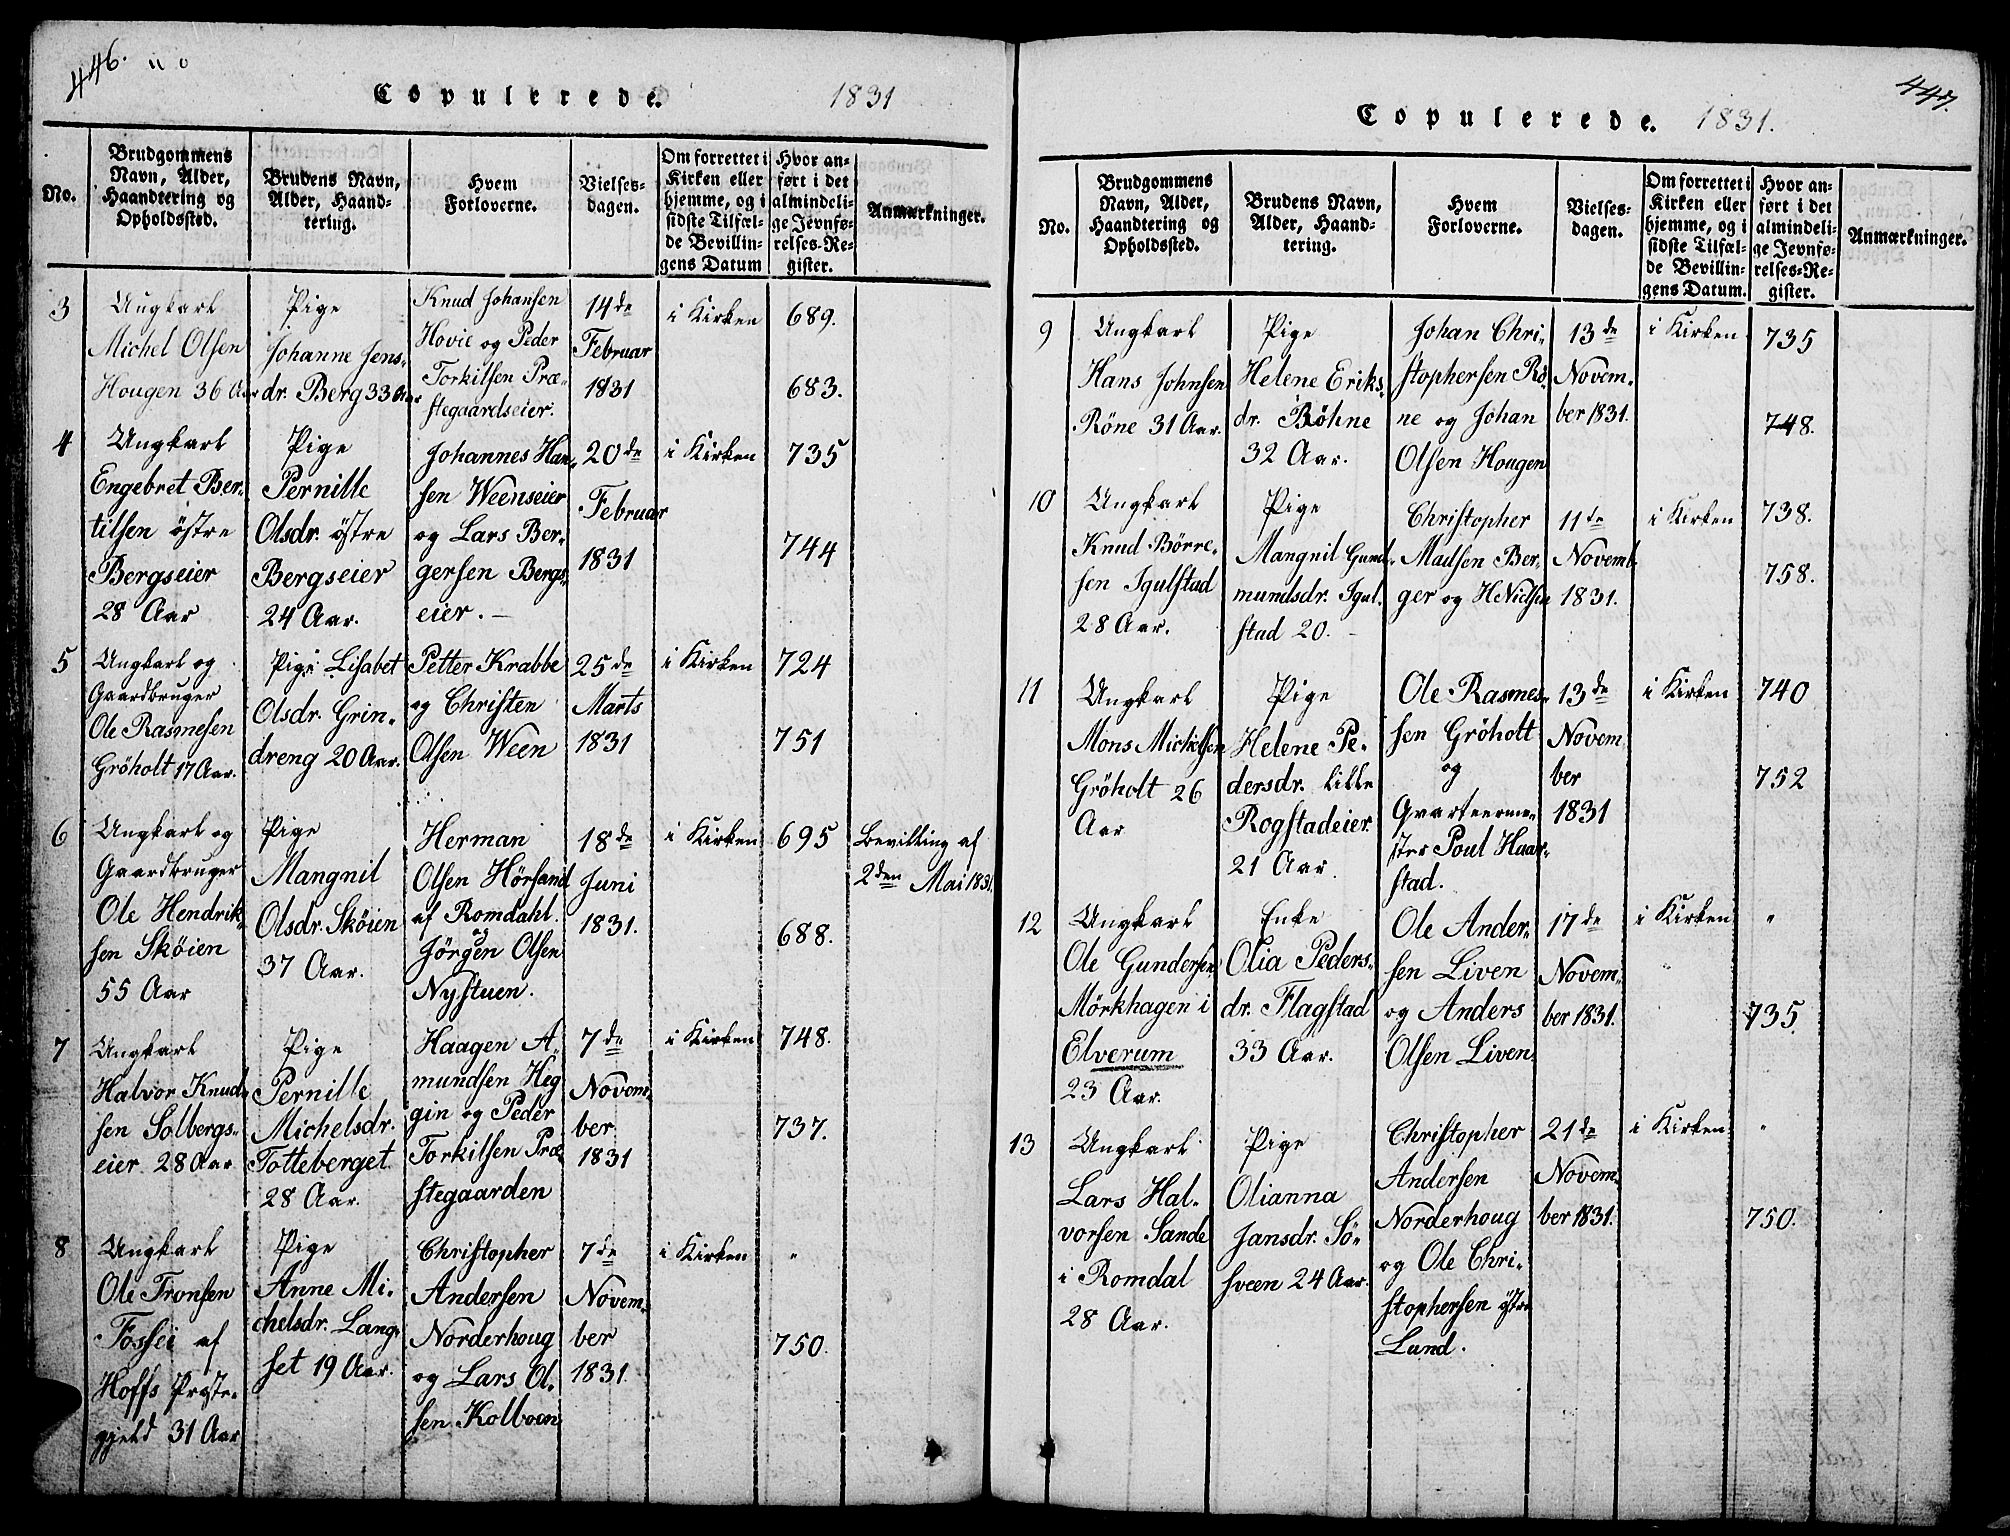 446.
Copulerede. 1831
No.
Brudgommens
Navn, Alder,
Haandtering og
Opholdssted.
Brudens Navn,
Alder, Haand-
tering.
Hvem
Forloverne.
Vielses-
dagen.
Om forrettet i
Kirken eller
hjemme, og i
sidste Tilfæl-
de Bevillin-
gens Datum
Hvor an-
ført i det
almindeli-
ge Jevnfø-
relses-Re-
gister.
Anmærkninger.
3
Ungkarl
Michel Olsen
Hougen 36 Aar
Pige
Johanne Jens-
dr. Berg 33 Aar
Knud Johansen
Hovie og Peder
Torkilsen Præ-
stegaardseier.
14de
Februar
1831
i Kirken
689.
683.
4
Ungkarl
Engebret Ber-
tilsen östre
Bergseier
28 Aar
Pige
Pernille
Olsdr. östre
Bergseier
24 Aar.
Johannes Han-
sen Weenseier
og Lars Ber-
gersen Bergs-
eier. —
20de
Februar
1831
i Kirken
735
744
5
Ungkarl og
Gaardbruger
Ole Rasmesen
Gröholt 17 Aar.
Pige Lisabet
Olsdr. Grin-
dreng 20 Aar.
Petter Krabbe
og Christen
Olsen Ween
25de
Marts
1831
i Kirken
724
751
6
Ungkarl og
Gaardbruger
Ole Hendrik-
sen Sköien
55 Aar
Pige
Mangnil
Olsdr. Sköien
37 Aar.
Herman
Olsen Hörsand
af Romdahl.
og
Jörgen Olsen
Nystuen.
18de
Juni
1831.
i Kirken
695
688.
Bevilling af
2den Mai 1831.
7
Ungkarl
Halvor Knud-
sen Solbergs-
eier 28 Aar
Pige
Pernille
Michelsdr.
Totteberget
28 Aar.
Haagen A-
mundsen Heg
gin og Peder
Torkilsen Præ
stegaarden
7de
Novem-
ber
1831
i Kirken
748.
737.
8
Ungkarl
Ole Tronsen
Fossei af
Hoffs Præste-
gjeld 31 Aar
Pige
Anne Mi-
chelsdr. Lang-
set 19 Aar.
Christopher
Andersen
Norderhoug
og Lars Ol-
sen Kolboen
7de
Novem-
ber
1831.
i Kirken
"
750.
447.
Copulerede. 1831.
No.
Brudgommens
Navn, Alder,
Haandtering og
Opholdssted.
Brudens Navn,
Alder, Haand-
tering.
Hvem
Forloverne.
Vielses-
dagen.
Om forrettet i
Kirken eller
hjemme, og i
sidste Tilfæl-
de Bevillin-
gens Datum.
Hvor an-
ført i det
almindeli-
ge Jevnfø-
relses-Re-
gister.
Anmærkninger.
9
Ungkarl
Hans Johnsen
Röne 31 Aar.
Pige
Helene Eriks-
dr. Böhne
32 Aar.
Johan Chri-
stophersen Rö-
ne og Johan
Olsen Hougen
13de
Novem-
ber 1831.
i Kirken
735
748.
10
Ungkarl
Knud Börre-
sen Igulstad
28 Aar.
Pige
Mangnil Gud-
mundsdr. Igul-
stad 20. —
Christopher
Madsen Ber-
ger og H Nielsen
11de
Novemb.
1831.
i Kirken
738.
758.
11
Ungkarl
Mons Michelsen
Gröholt 26
Aar
Pige
Helene Pe-
dersdr. lille
Rogstadeier
21 Aar.
Ole Rasmes-
sen Gröholt
og
Qvarteerme-
ster Poul Haar-
stad.
13de
Novem
ber
1831
i Kirken
740
752
12
Ungkarl
Ole Gundersen
Mörkhagen i
Elverum
23 Aar.
Enke
Olia Peders-
dr. Flagstad
33 Aar.
Ole Ander-
sen Liven
og Anders
Olsen Liven
17de
Novem-
ber 1831.
i Kirken
"
735.
13
Ungkarl
Lars Hal-
vorsen Sande
i Romdal
28 Aar.
Pige
Olianna
Jansdr. Sö-
sveen 24 Aar.
Christopher
Andersen
Norderhoug
og Ole Chri-
stophersen östre
Lund.
21de
Novem-
ber 1831.
i Kirken
"
750.